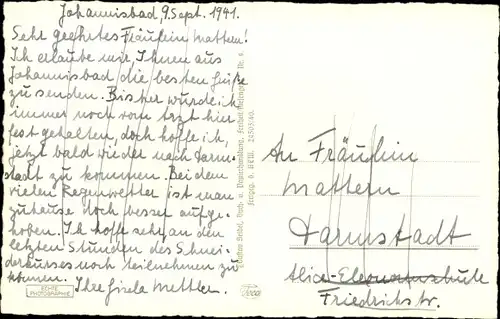 Johannisbad, 9. Sept. 1941.
Sehr geehrtes Fräulein Mattern!
Ich erlaube mir, Ihnen aus
Johannisbad die besten Grüße
zu senden. Bisher wurde ich
immer noch vom Arzt hier
fest gehalten, doch hoffe ich,
jetzt bald wieder nach Darm-
stadt zu kommen. Bei dem
vielen Regenwetter ist man
zuhause noch besser aufge-
hoben. Ich hoffe sehr, an den
letzten Stunden des Schnei-
derkurses noch teilnehmen zu
können. Ihre Gisela Mettler.
ECHTE
PHOTOGRAPHIE
Gustav Seidel, Buch- u. Papierhandlung, Freiheit
An Fräulein
Mattern
Darmstadt
Alice-Eleonorenschule
Friedrichstr.